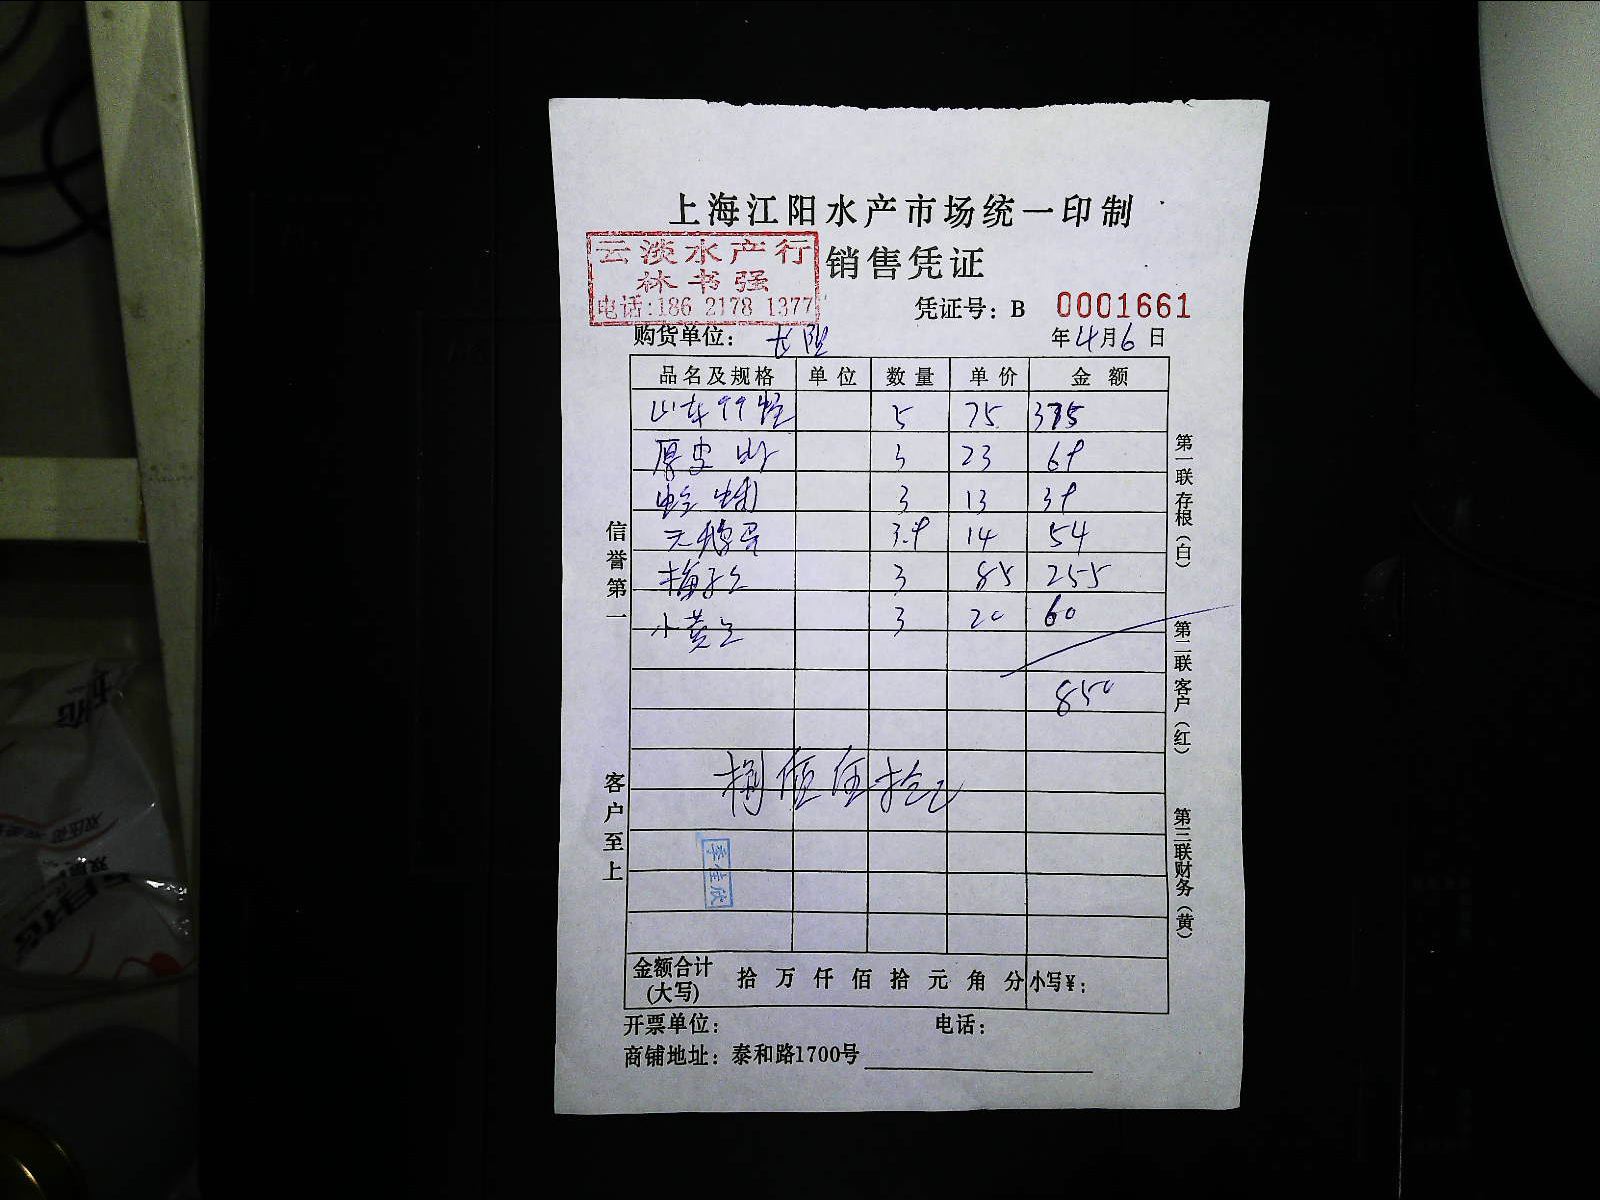 上海江阳水产市场统一印制
销售凭证
云淡水产行
林书强
电话:186 2178 1377
凭证号: B 0001661
购货单位:
年4月6日
品名及规格 单位 数量 单价 金额
山东 5 75 375
厚皮 3 23 69
蛤蜊 3 13 39
天鹅蛋 3.9 14 54
梅子 3 85 255
小黄 3 20 60
850
捌佰伍拾元
李佳欣
金额合计(大写) 拾 万 仟 佰 拾 元 角 分 小写¥:
开票单位: 电话:
商铺地址: 泰和路1700号
信誉第一
客户至上
第一联存根(白)
第二联客户(红)
第三联财务(黄)